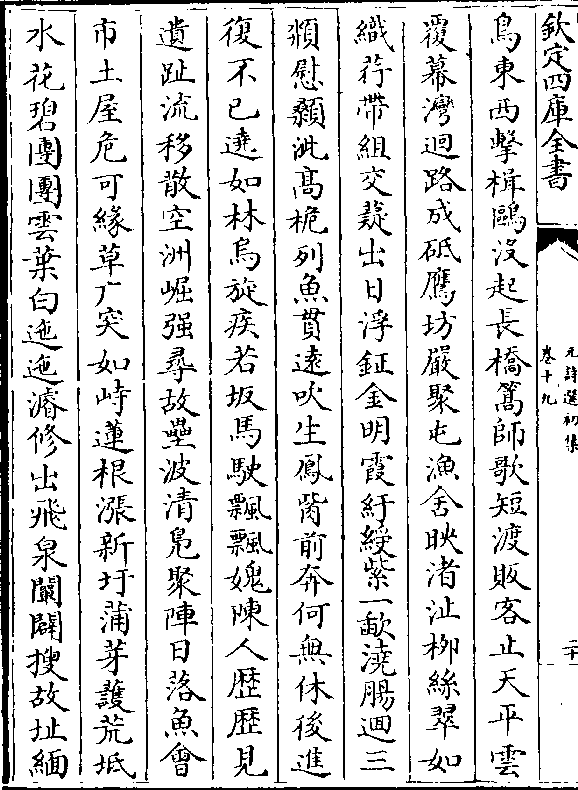 欽定四庫全書
元詩選初集
卷十九
二十
鳥東西擊楫鷗没起長橋篙師歌短渡販客止天平雲
覆幕灣迴路成砥鷹坊嚴聚屯漁舍映渚沚柳絲翠如
織荇帶組交蕤出日浮鉦金明霞紆綬紫一歃澆腸迴三
頮慰顙泚高桅列魚貫遠吹生鳳觜前奔何無休後進
復不已遶如林烏旋疾若坂馬駛飄飄媿陳人歴歴見
遺趾流移散空洲崛强尋故壘波清鳬聚陣日落魚會
市土屋危可緣草广突如峙蓮根漲新圩蒲芽護荒坻
水花碧團團雲葉白迤迤濬修出飛泉闌闢搜故址緬